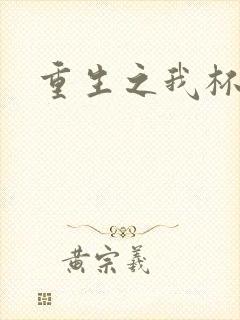 重生之我
黄宗羲